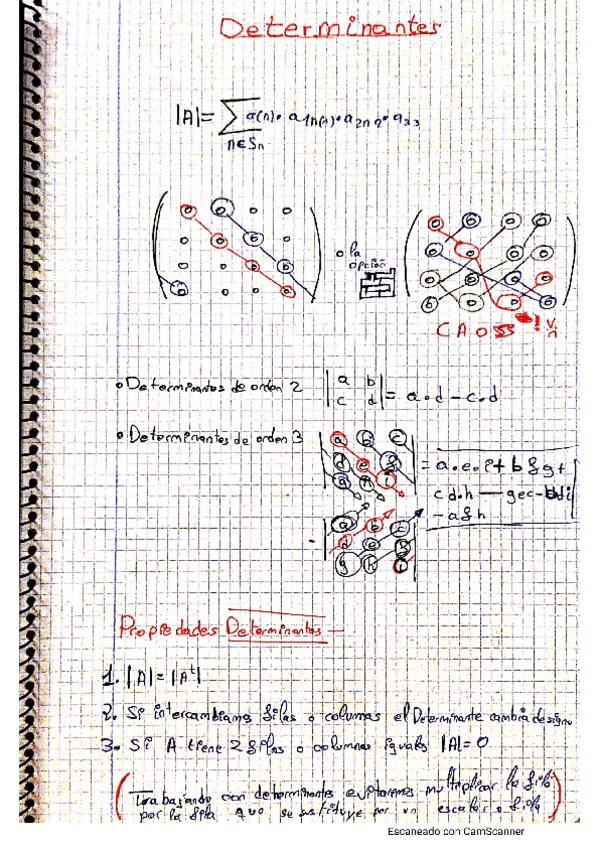 Determinantes
|A| = ∑ σ(n) · a1n(1) · a2n2 · a33
n∈Sn
o la
opción
CAOSS !
o Determinantes de orden 2 |a b| = a·d - c·d
c d
o Determinantes de orden 3
a b c
d e f
g h i
= a.e.i + b f g +
c d.h — gec - bdi
- a f h
- a b c
d e f
g h i
Propiedades Determinantes —
1. |A| = |Aᵗ|
2. Si intercambiamos filas o columas el Determinante cambia de signo
3. Si A tiene 2 filas o columnas iguales |A| = 0
(Trabajando con determinantes evitaremos multiplicar la fila
por la fila que se sustituye por un escalar o fila)
Escaneado con CamScanner